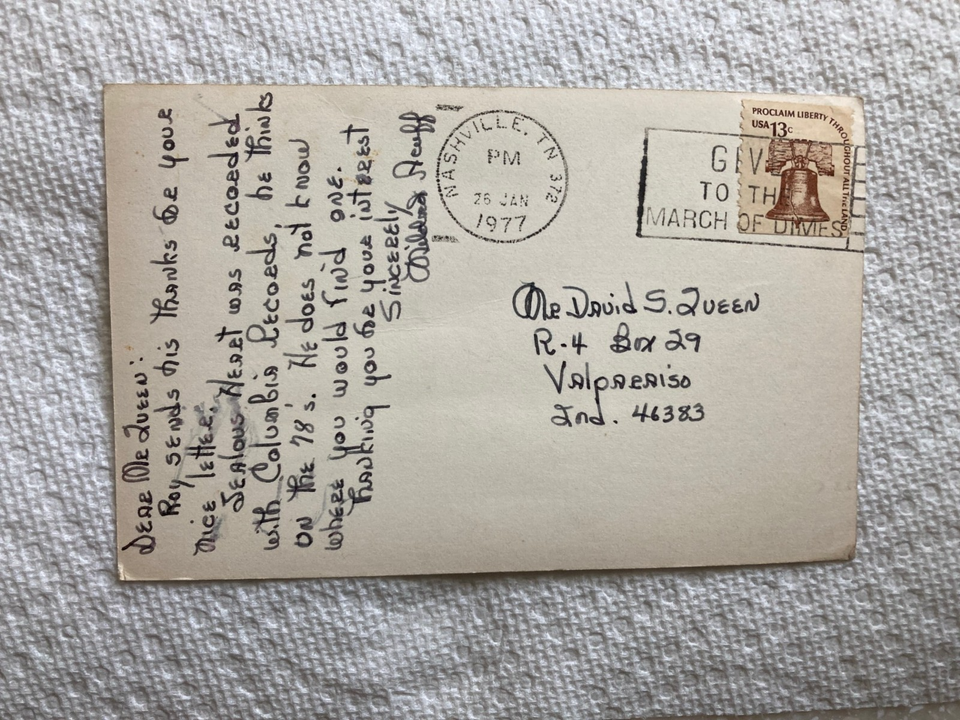 Dear Mr Queen:
Roy sends his thanks for your
nice letter.
Jealous Heart was recorded
with Columbia Records, he thinks
on the 78's. He does not know
where you would find one.
Thanking you for your interest
Sincerely
Mildred Acuff
NASHVILLE, TN 372
PM
26 JAN
1977
GIVE
TO THE
MARCH OF DIMES
PROCLAIM LIBERTY THROUGHOUT ALL THE LAND
USA 13c
Mr David S. Queen
R-4 Box 29
Valparaiso
Ind. 46383